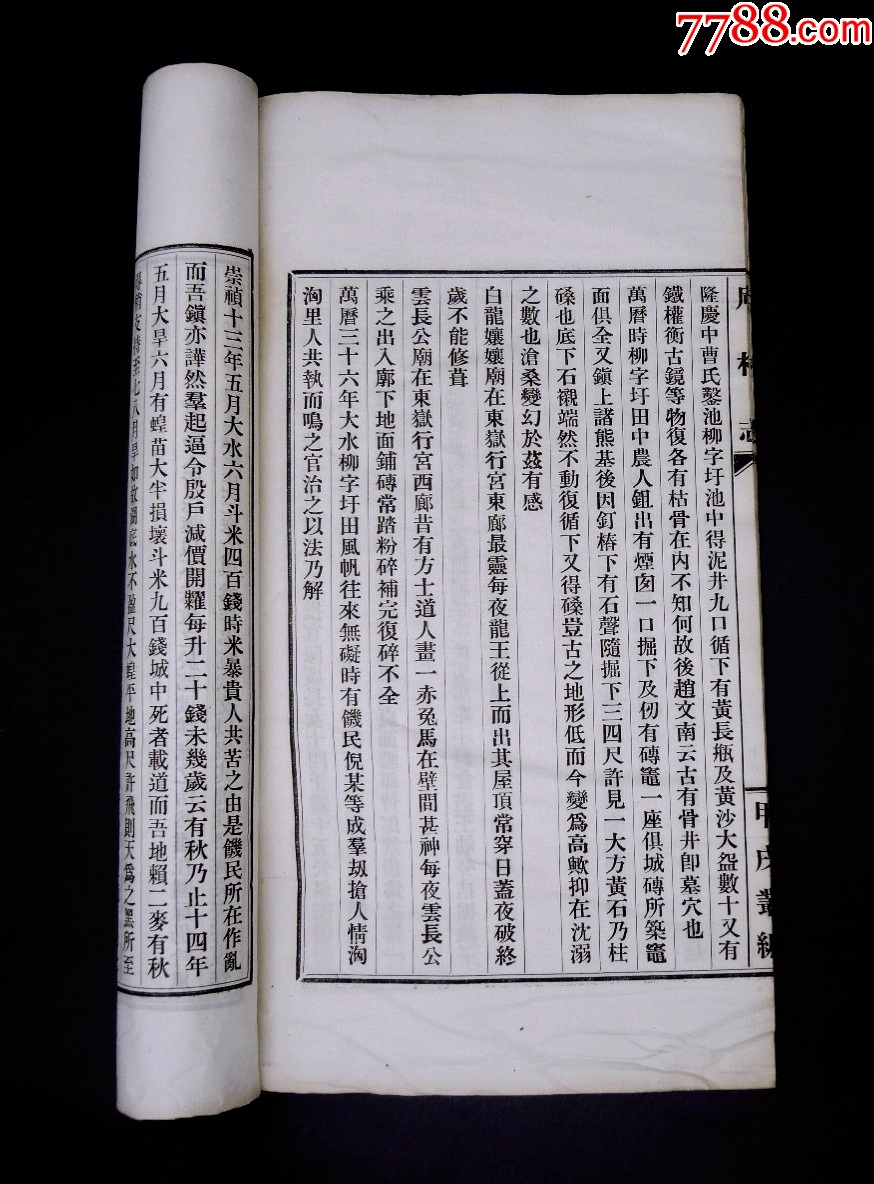 7788.com
隆慶中曹氏鑿池柳字圩池中得泥井九口循下有黃長瓶及黃沙大盌數十又有
鐵權衡古鏡等物復各有枯骨在內不知何故後趙文南云古有骨井卽墓穴也
萬曆時柳字圩田中農人鉏出有煙囱一口掘下及仞有磚竈一座俱城磚所築竈
面俱全又鎭上諸熊基後因釘樁下有石聲隨掘下三四尺許見一大方黃石乃柱
磉也底下石襯端然不動復循下又得磉豈古之地形低而今變爲高歟抑在沈溺
之數也滄桑變幻於茲有感
白龍孃孃廟在東獄行宮東廊最靈每夜龍王從上而出其屋頂常穿日蓋夜破終
歲不能修葺
雲長公廟在東獄行宮西廊昔有方士道人畫一赤兔馬在壁間甚神每夜雲長公
乘之出入廓下地面鋪磚常踏粉碎補完復碎不全
萬曆三十六年大水柳字圩田風帆往來無礙時有饑民倪某等成羣刼搶人情洶
洶里人共執而鳴之官治之以法乃解
崇禎十三年五月大水六月斗米四百錢時米暴貴人共苦之由是饑民所在作亂
而吾鎭亦譁然羣起逼令殷戶減價開糶每升二十錢未幾歲云有秋乃止十四年
五月大旱六月有蝗苗大半損壞斗米九百錢城中死者載道而吾地賴二麥有秋
七八月旱如故湖底水不盈尺大蝗平地高尺許飛則天爲之黑所至
志
戌叢編